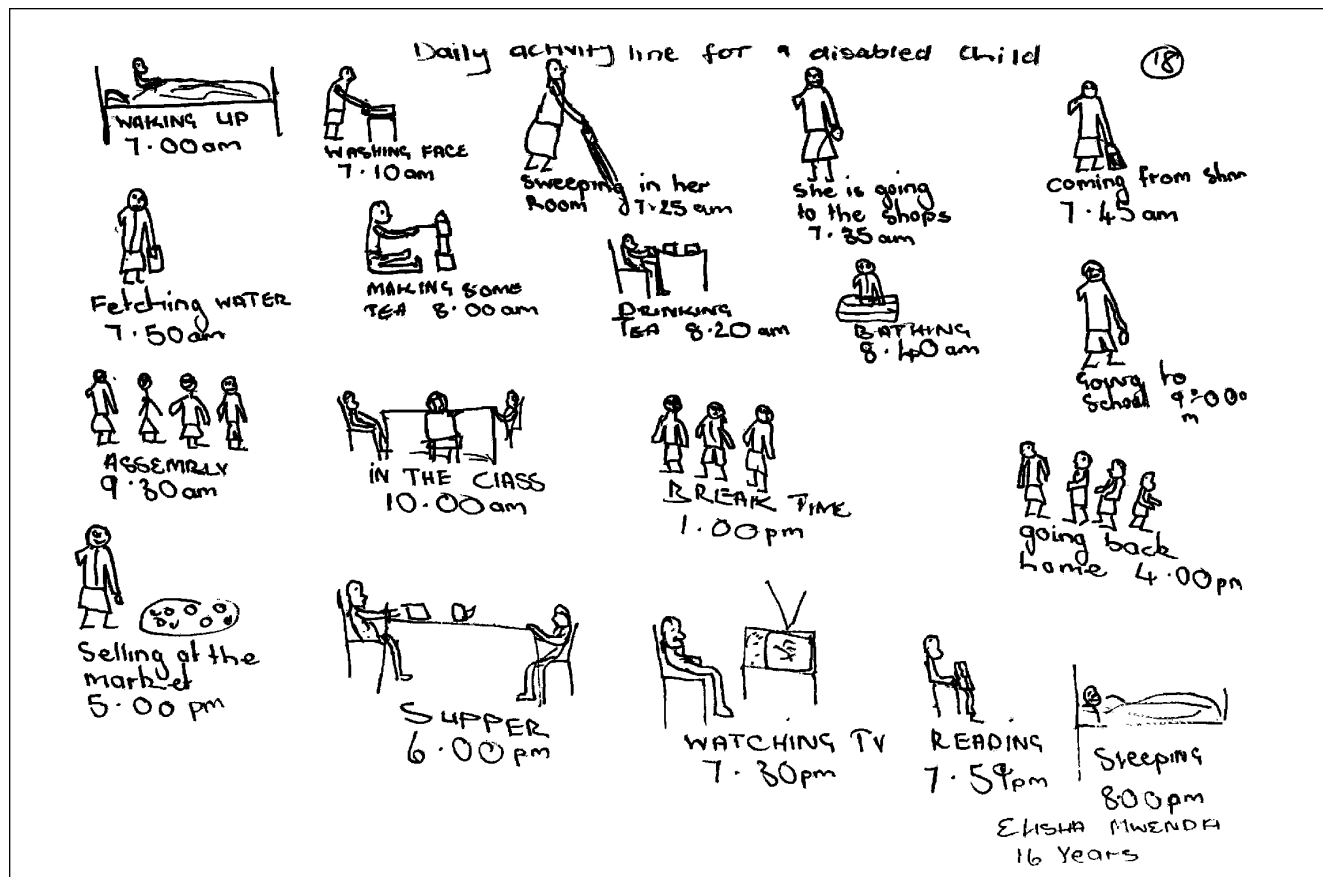 Daily activity line for a disabled child
18
WAKING UP
7.00am
WASHING FACE
7.10am
Sweeping in her
ROOM 7.25 am
She is going
to the shops
7.35am
coming from
7.45 am
Fetching WATER
7.50am
MAKING SOME
TEA 8.00am
DRINKING
TEA 8.20am
BATHING
8.40am
going to
School
ASSEMBLY
9.30am
IN THE CLASS
10.00am
BREAK TIME
1.00pm
going back
home 4.00pm
Selling at the
market
5.00 pm
SUPPER
6.00pm
WATCHING TV
7.30pm
READING
7.59pm
Sleeping
8.00pm
ELISHA MWENDA
16 Years